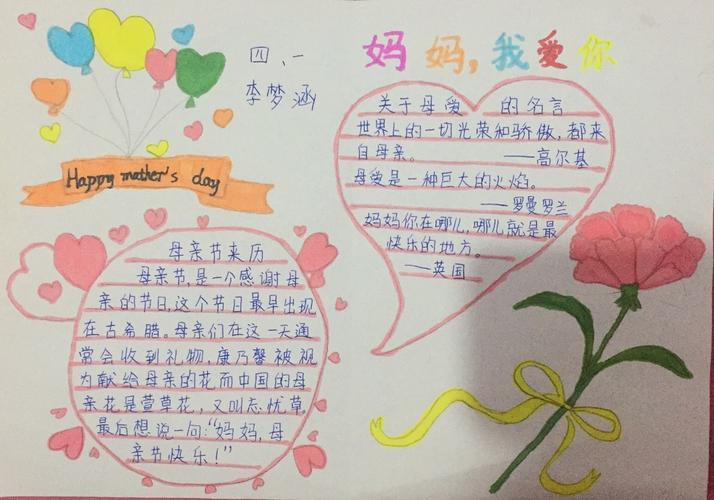 妈妈,我爱你
四、一
李梦涵
Happy mother's day
关于母爱的名言
世界上的一切光荣和骄傲,都来
自母亲。——高尔基
母爱是一种巨大的火焰。
——罗曼罗兰
妈妈你在哪儿,哪儿就是最
快乐的地方。
——英国
母亲节来历
母亲节,是一个感谢母
亲的节日,这个节日最早出现
在古希腊。母亲们在这一天通
常会收到礼物,康乃馨被视
为献给母亲的花而中国的母
亲花是萱草花,又叫忘忧草。
最后想说一句:“妈妈,母
亲节快乐!”